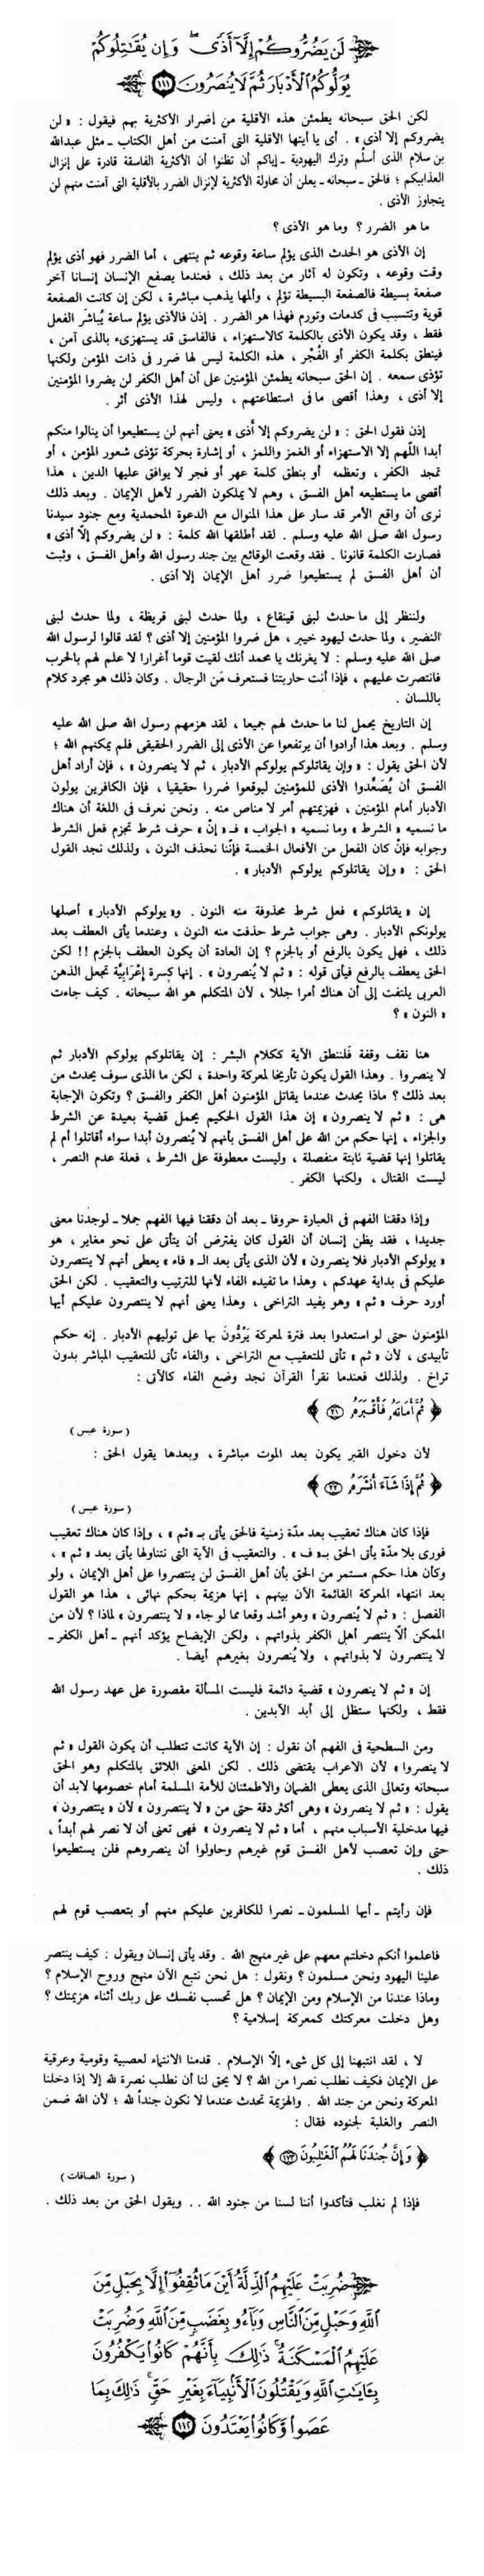 لَن يَضُرُّوكُمْ إِلَّا أَذًى ۖ وَإِن يُقَاتِلُوكُمْ
يُوَلُّوكُمُ الْأَدْبَارَ ثُمَّ لَا يُنصَرُونَ ١١١
لكن الحق سبحانه يطمئن هذه الأقلية من أضرار الأكثرية بهم فيقول : « لن
يضروكم إلا أذى » . أى يا أيتها الأقلية التى آمنت من أهل الكتاب ـ مثل عبدالله
بن سلام الذى أسلم وترك اليهودية ـ إياكم أن تظنوا أن الأكثرية الفاسقة قادرة على إنزال
العذاب بكم ؛ فالحق ـ سبحانه ـ يعلن أن محاولة الأكثرية لإنزال الضرر بالأقلية التى آمنت منهم لن
يتجاوز الأذى .
ما هو الضرر ؟ وما هو الأذى ؟
إن الأذى هو الحدث الذى يؤلم ساعة وقوعه ثم ينتهى ، أما الضرر فهو أذى يؤلم
وقت وقوعه ، وتكون له آثار من بعد ذلك ، فعندما يصفع الإنسان إنسانا آخر
صفعة بسيطة فالصفعة البسيطة تؤلم ، وألمها يذهب مباشرة ، لكن إن كانت الصفعة
قوية وتتسبب فى كدمات وتورم فهذا هو الضرر . إذن فالأذى يؤلم ساعة يُباشَر الفعل
فقط ، وقد يكون الأذى بالكلمة كالاستهزاء ، فالفاسق قد يستهزىء بالذى آمن ،
فينطق بكلمة الكفر أو الفُجْر ، هذه الكلمة ليس لها ضرر فى ذات المؤمن ولكنها
تؤذى سمعه . إن الحق سبحانه يطمئن المؤمنين على أن أهل الكفر لن يضروا المؤمنين
إلا أذى ، وهذا أقصى ما فى استطاعتهم ، وليس لهذا الأذى أثر .
إذن فقول الحق : « لن يضروكم إلا أذى » يعنى أنهم لن يستطيعوا أن ينالوا منكم
أبدا اللّهم إلا الاستهزاء أو الغمز واللمز ، أو إشارة بحركة تؤذى شعور المؤمن ، أو
تمجد الكفر ، وتعظمه أو بنطق كلمة عهر أو فجر لا يوافق عليها الدين ، هذا
أقصى ما يستطيعه أهل الفسق ، وهم لا يملكون الضرر لأهل الإيمان . وبعد ذلك
نرى أن واقع الأمر قد سار على هذا المنوال مع الدعوة المحمدية ومع جنود سيدنا
رسول الله صلى الله عليه وسلم . لقد أطلقها الله كلمة : « لن يضروكم إلّا أذى »
فصارت الكلمة قانونا . فقد وقعت الوقائع بين جند رسول الله وأهل الفسق ، وثبت
أن أهل الفسق لم يستطيعوا ضرر أهل الإيمان إلا أذى .
ولننظر إلى ما حدث لبنى قينقاع ، ولما حدث لبنى قريظة ، ولما حدث لبنى
النضير ، ولما حدث ليهود خيبر ، هل ضروا المؤمنين إلا أذى ؟ لقد قالوا لرسول الله
صلى الله عليه وسلم : لا يغرنك يا محمد أنك لقيت قوما أغرارا لا علم لهم بالحرب
فانتصرت عليهم ، فإذا أنت حاربتنا فستعرف مَن الرجال . وكان ذلك هو مجرد كلام
باللسان .
إن التاريخ يحمل لنا ما حدث لهم جميعا ، لقد هزمهم رسول الله صلى الله عليه
وسلم . وبعد هذا أرادوا أن يرتفعوا عن الأذى إلى الضرر الحقيقى فلم يمكنهم الله ؛
لأن الحق يقول : « وإن يقاتلوكم يولوكم الأدبار ، ثم لا ينصرون » ، فإن أراد أهل
الفسق أن يُصَعِّدوا الأذى للمؤمنين ليوقعوا ضررا حقيقيا ، فإن الكافرين يولون
الأدبار أمام المؤمنين ، فهزيمتهم أمر لا مناص منه . ونحن نعرف فى اللغة أن هناك
ما نسميه « الشرط » وما نسميه « الجواب » فـ « إنْ » حرف شرط تجزم فعل الشرط
وجوابه فإنْ كان الفعل من الأفعال الخمسة فإنّنا نحذف النون ، ولذلك نجد القول
الحق : « وإن يقاتلوكم يولوكم الأدبار » .
إن « يقاتلوكم » فعل شرط محذوفة منه النون . و« يولوكم الأدبار » أصلها
يولونكم الأدبار . وهى جواب شرط حذفت منه النون ، وعندما يأتى العطف بعد
ذلك ، فهل يكون بالرفع أو بالجزم ؟ إن العادة أن يكون العطف بالجزم !! لكن
الحق يعطف بالرفع فيأتى قوله : « ثم لا يُنصرون » . إنها كسرة إعْرَابيَّة تجعل الذهن
العربى يلتفت إلى أن هناك أمرا جللا ، لأن المتكلم هو الله سبحانه . كيف جاءت
« النون » ؟
هنا نقف وقفة فلننطق الآية ككلام البشر : إن يقاتلوكم يولوكم الأدبار ثم
لا ينصروا . وهذا القول يكون تأريخا لمعركة واحدة ، لكن ما الذى سوف يحدث من
بعد ذلك ؟ ماذا يحدث عندما يقاتل المؤمنون أهل الكفر والفسق ؟ وتكون الإجابة
هى : « ثم لا ينصرون » إن هذا القول الحكيم يحمل قضية بعيدة عن الشرط
والجزاء ، إنها حكم من الله على أهل الفسق بأنهم لا يُنصرون أبدا سواء أقاتلوا أم لم
يقاتلوا إنها قضية ثابتة منفصلة ، وليست معطوفة على الشرط ، فعلة عدم النصر ،
ليست القتال ، ولكنها الكفر .
وإذا دققنا الفهم فى العبارة حروفا ـ بعد أن دققنا فيها الفهم جملا ـ لوجدنا معنى
جديدا ، فقد يظن إنسان أن القول كان يفترض أن يتأتى على نحو مغاير ، هو
« يولوكم الأدبار فلا ينصرون » لأن الذى يأتى بعد الـ « فاء » يعطى أنهم لا ينتصرون
عليكم فى بداية عهدكم ، وهذا ما تفيده الفاء لأنها للترتيب والتعقيب . لكن الحق
أورد حرف « ثم » وهو يفيد التراخى ، وهذا يعنى أنهم لا ينتصرون عليكم أيها
المؤمنون حتى لو استعدوا بعد فترة لمعركة يَرُدُّونَ بها على توليهم الأدبار . إنه حكم
تأبيدى ، لأن « ثم » تأتى للتعقيب مع التراخى ، والفاء تأتى للتعقيب المباشر بدون
تراخ . ولذلك فعندما نقرأ القرآن نجد وضع الفاء كالآتى :
﴿ ثُمَّ أَمَاتَهُ فَأَقْبَرَهُ ٢١ ﴾
( سورة عبس )
لأن دخول القبر يكون بعد الموت مباشرة ، وبعدها يقول الحق :
﴿ ثُمَّ إِذَا شَاءَ أَنشَرَهُ ٢٢ ﴾
( سورة عبس )
فإذا كان هناك تعقيب بعد مدّة زمنية فالحق يأتى بـ « ثم » ، وإذا كان هناك تعقيب
فورى بلا مدّة يأتى الحق بـ « ف » . والتعقيب فى الآية التى نتناولها يأتى بعد « ثم » ،
وكأن هذا حكم مستمر من الحق بأن أهل الفسق لن ينتصروا على أهل الإيمان ، ولو
بعد انتهاء المعركة القائمة الآن بينهم ، إنها هزيمة بحكم نهائى ، هذا هو القول
الفصل : « ثم لا يُنصرون » وهو أشد وقعا مما لو جاء « لا ينتصرون » لماذا ؟ لأن من
الممكن ألّا ينتصر أهل الكفر بذواتهم ، ولكن الإيضاح يؤكد أنهم ـ أهل الكفر ـ
لا ينتصرون لا بذواتهم ، ولا يُنصرون بغيرهم أيضا .
إن « ثم لا ينصرون » قضية دائمة فليست المسألة مقصورة على عهد رسول الله
فقط ، ولكنها ستظل إلى أبد الآبدين .
ومن السطحية فى الفهم أن نقول : إن الآية كانت تتطلب أن يكون القول « ثم
لا ينصروا » لأن الاعراب يقتضى ذلك . لكن المعنى اللائق بالمتكلم وهو الحق
سبحانه وتعالى الذى يعطى الضمان والاطمئنان للأمة المسلمة أمام خصومها لابد أن
يقول : « ثم لا ينصرون » وهى أكثر دقة حتى من « لا ينتصرون » لأن « ينتصرون »
فيها مدخلية الأسباب منهم ، أما « ثم لا ينصرون » فهى تعنى أن لا نصر لهم أبداً ،
حتى وإن تعصب لأهل الفسق قوم غيرهم وحاولوا أن ينصروهم فلن يستطيعوا
ذلك .
فإن رأيتم ـ أيها المسلمون ـ نصرا للكافرين عليكم منهم أو بتعصب قوم لهم
فاعلموا أنكم دخلتم معهم على غير منهج الله . وقد يأتى إنسان ويقول : كيف ينتصر
علينا اليهود ونحن مسلمون ؟ ونقول : هل نحن نتبع الآن منهج وروح الإسلام ؟
وماذا عندنا من الإسلام ومن الإيمان ؟ هل تحسب نفسك على ربك أثناء هزيمتك ؟
وهل دخلت معركتك كمعركة إسلامية ؟
لا ، لقد انتبهنا إلى كل شىء إلّا الإسلام . قدمنا الانتماء لعصبية وقومية وعرقية
على الإيمان فكيف نطلب نصرا من الله ؟ لا يحق لنا أن نطلب نصرة لله إلا إذا دخلنا
المعركة ونحن من جند الله . والهزيمة تحدث عندما لا نكون جنداً لله ؛ لأن الله ضمن
النصر والغلبة لجنوده فقال :
﴿ وَإِنَّ جُندَنَا لَهُمُ الْغَالِبُونَ ١٧٣ ﴾
( سورة الصافات )
فإذا لم نغلب فتأكدوا أننا لسنا من جنود الله .. ويقول الحق من بعد ذلك .
ضُرِبَتْ عَلَيْهِمُ الذِّلَّةُ أَيْنَ مَا ثُقِفُوا إِلَّا بِحَبْلٍ مِّنَ
اللَّهِ وَحَبْلٍ مِّنَ النَّاسِ وَبَاءُو بِغَضَبٍ مِّنَ اللَّهِ وَضُرِبَتْ
عَلَيْهِمُ الْمَسْكَنَةُ ۚ ذَٰلِكَ بِأَنَّهُمْ كَانُوا يَكْفُرُونَ
بِآيَاتِ اللَّهِ وَيَقْتُلُونَ الْأَنبِيَاءَ بِغَيْرِ حَقٍّ ۚ ذَٰلِكَ بِمَا
عَصَوا وَّكَانُوا يَعْتَدُونَ ١١٢